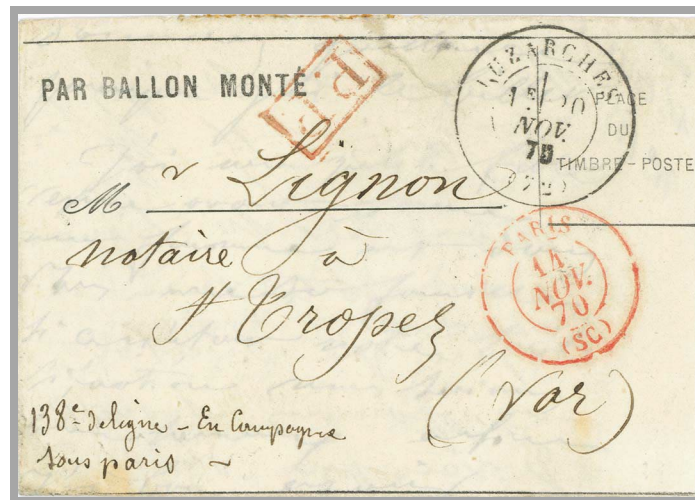 PAR BALLON MONTÉ
P.P.
LUZARCHES
NOV.
70
PLACE
DU
TIMBRE-POSTE
Mr Lignon
notaire à
St Tropez
(Var)
PARIS
14
NOV.
70
(SC)
138e de ligne - En Campagne
sous paris